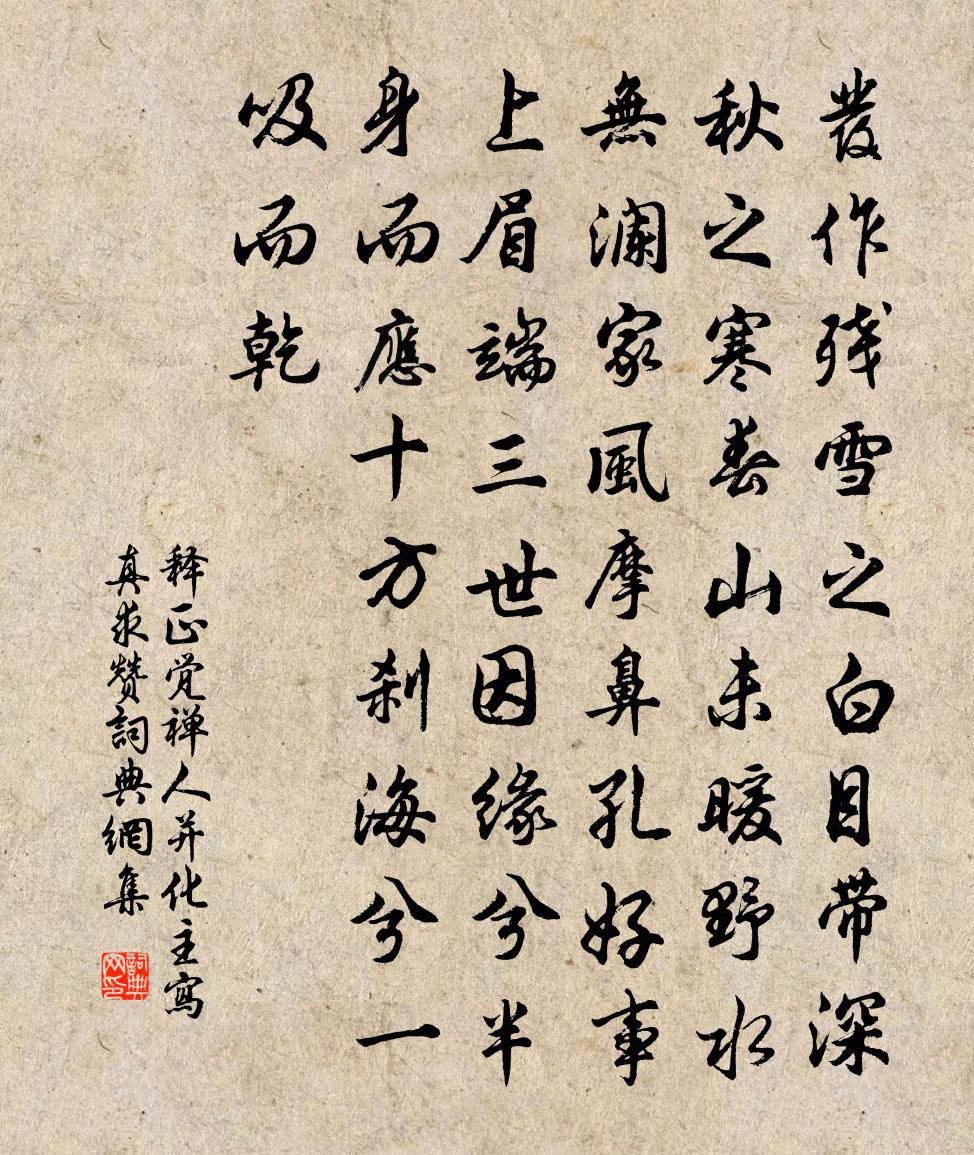 發作残雪之白目带深
秋之寒春山未暖野水
無澜家風摩鼻孔好事
上眉端三世因缘兮半
身而應十方刹海兮一
吸而乾
释正觉禅人并化主寫
真求赞詞典網集
詞典网印